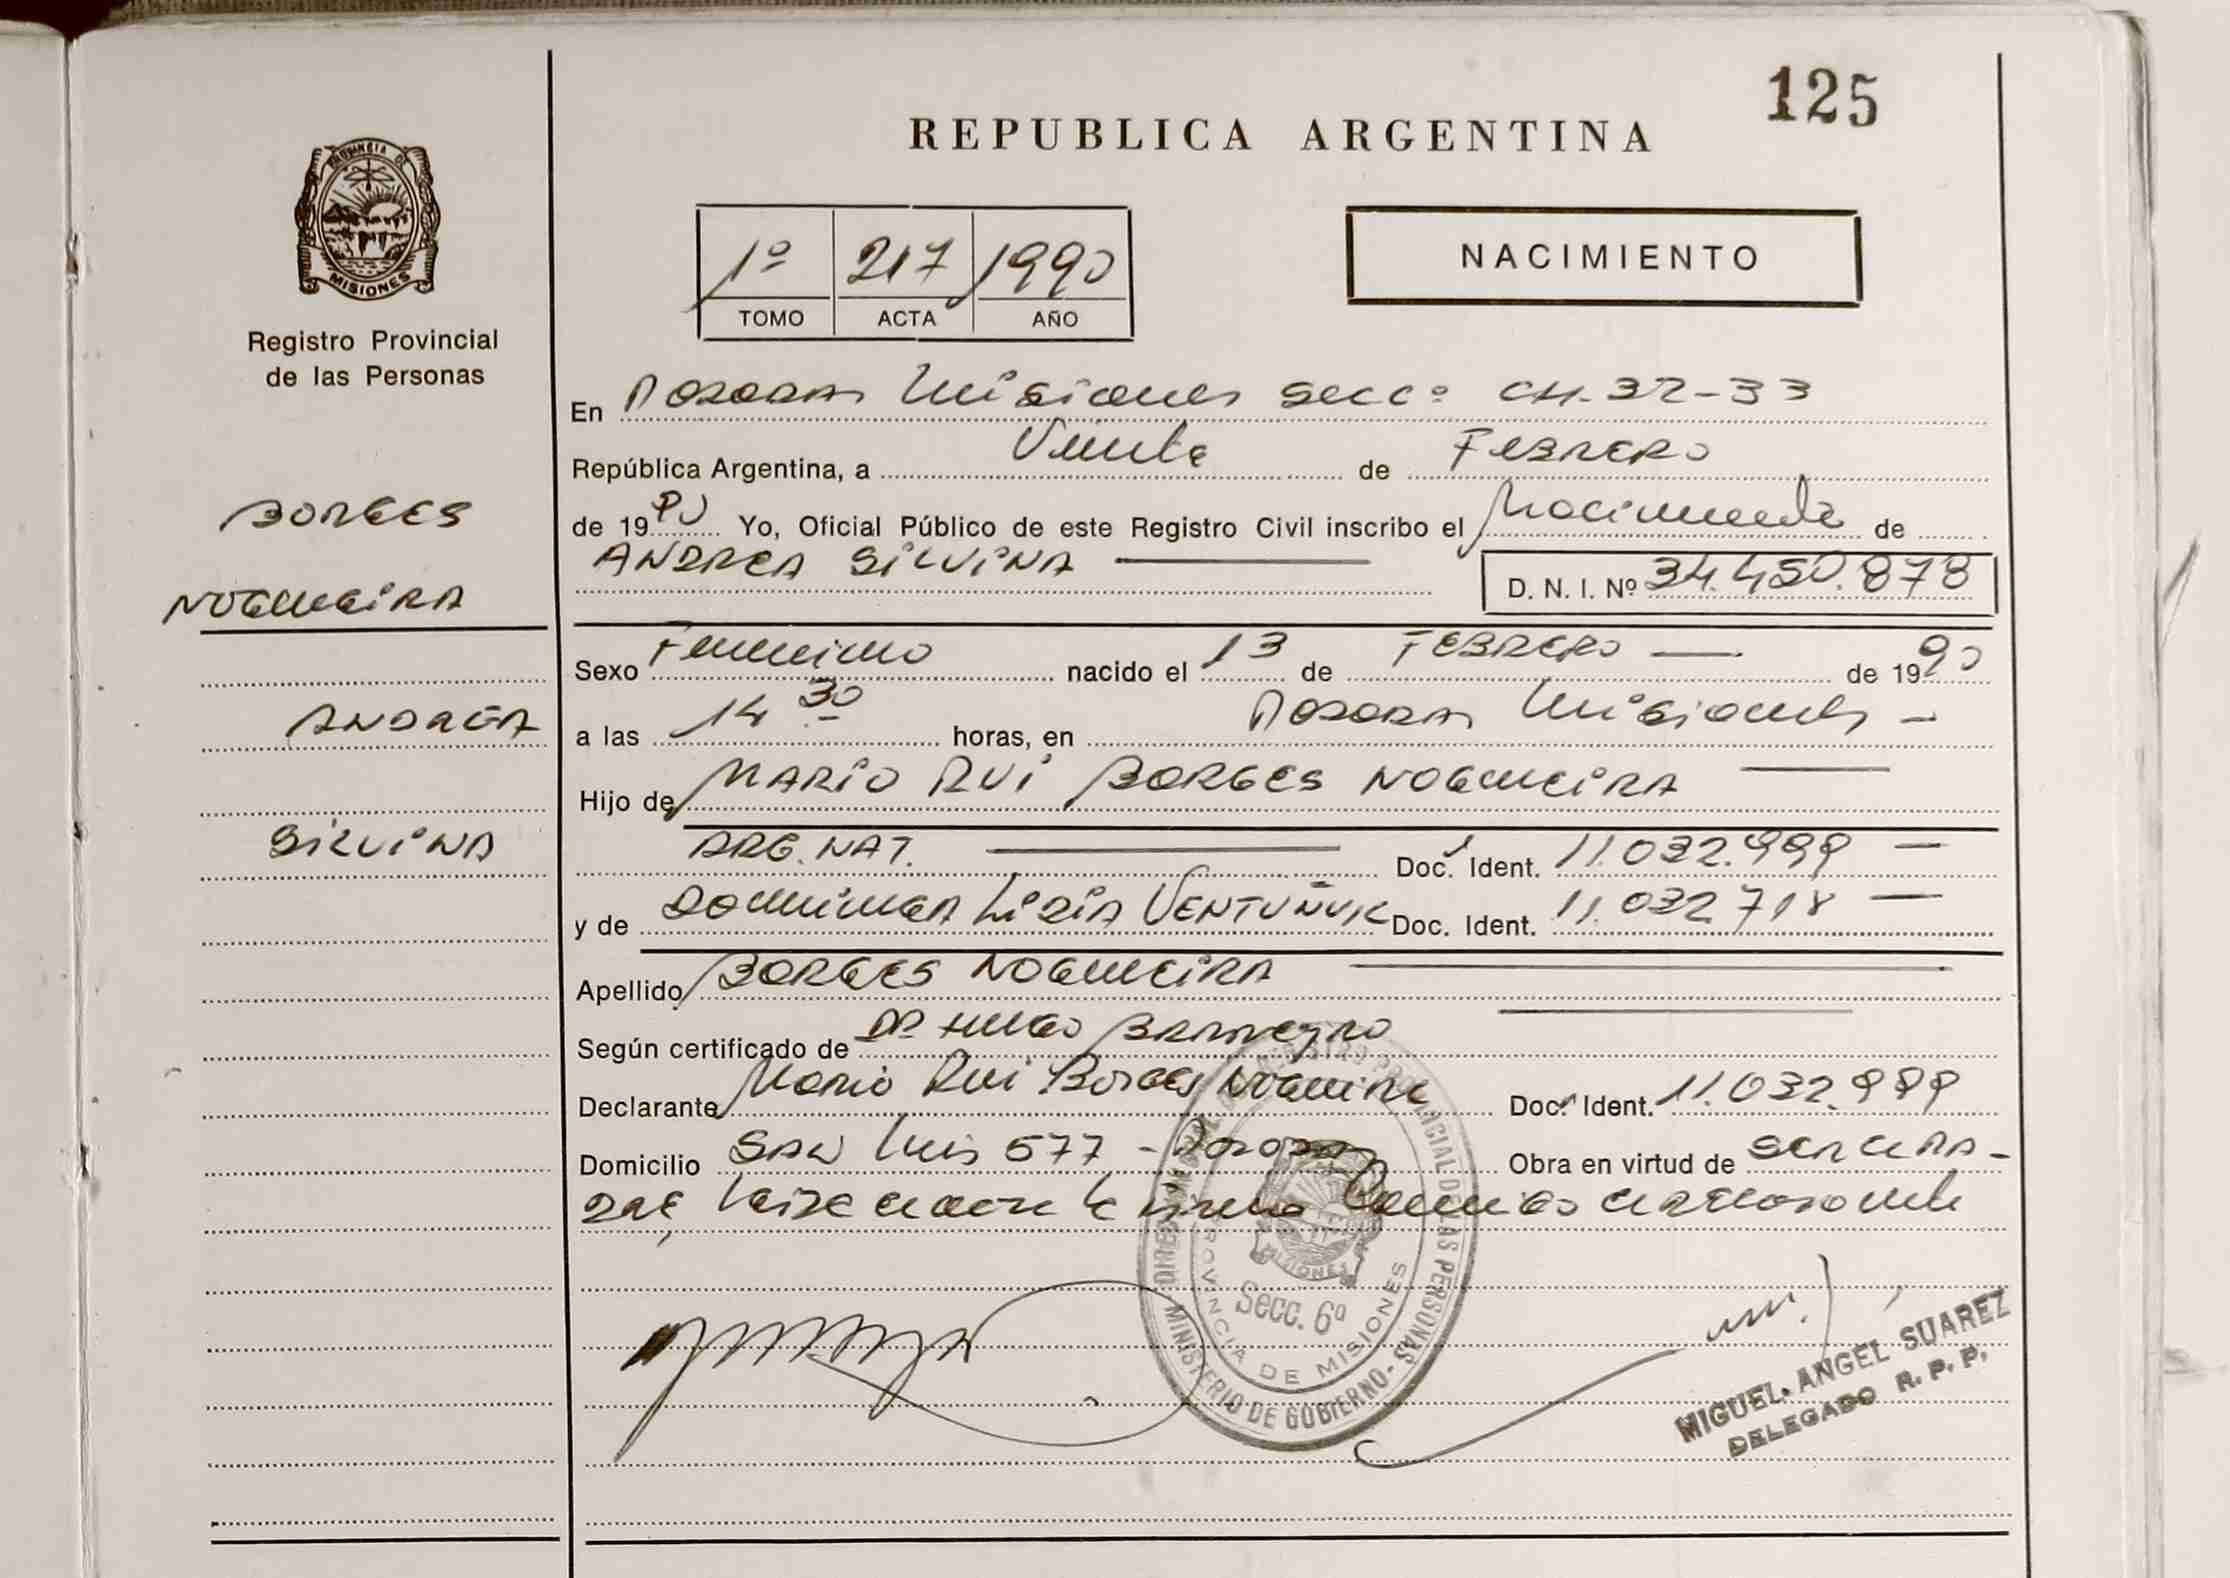 125
REPUBLICA ARGENTINA
PROVINCIA DE
MISIONES
Registro Provincial
de las Personas
1º 217 1990
TOMO ACTA AÑO
NACIMIENTO
En Posadas Misiones Secc: CH. 32-33
República Argentina, a Veinte de FEBRERO
de 1990 Yo, Oficial Público de este Registro Civil inscribo el Nacimiento de
BORGES
NOGUEIRA
ANDREA
SILVINA
ANDREA SILVINA
D. N. I. Nº 34.450.878
Sexo Femenino nacido el 13 de FEBRERO de 1990
a las 14 30 horas, en Posadas Misiones
Hijo de MARIO RUI BORGES NOGUEIRA
ARG. NAT. Doc. Ident. 11.032.999
y de Doc. Ident. 11.032 718
Apellido BORGES NOGUEIRA
Según certificado de DR HUGO
Declarante Mario Rui Borges Nogueira Doc. Ident. 11.032.999
Domicilio SAN Luis 577 - Posadas Obra en virtud de
DIRECCION REGISTRO PROVINCIAL DE LAS PERSONAS
MINISTERIO DE GOBIERNO
PROVINCIA DE MISIONES
MISIONES
Secc. 6º
MIGUEL ANGEL SUAREZ
DELEGADO R. P. P.